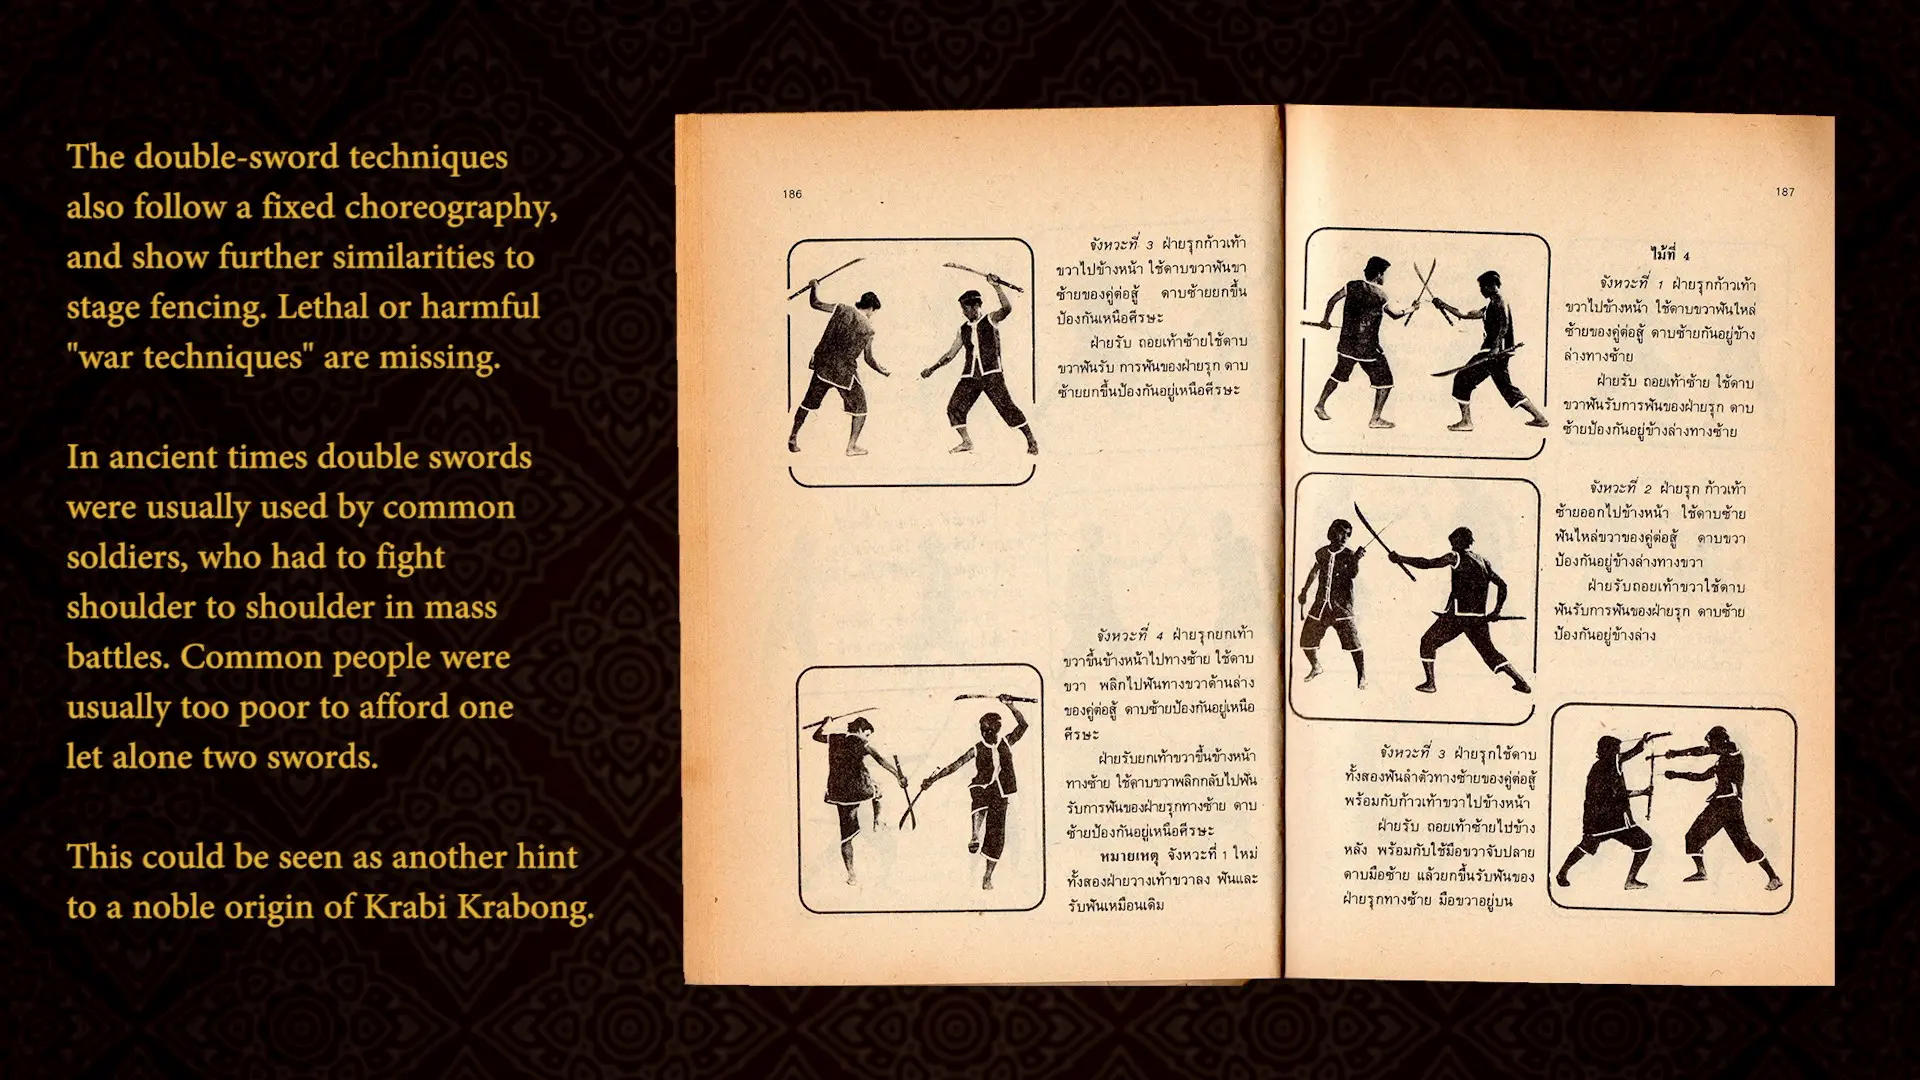 The double-sword techniques
also follow a fixed choreography,
and show further similarities to
stage fencing. Lethal or harmful
"war techniques" are missing.
In ancient times double swords
were usually used by common
soldiers, who had to fight
shoulder to shoulder in mass
battles. Common people were
usually too poor to afford one
let alone two swords.
This could be seen as another hint
to a noble origin of Krabi Krabong.
186
จังหวะที่ 3 ฝ่ายรุกก้าวเท้า
ขวาไปข้างหน้า ใช้ดาบขวาฟันขา
ซ้ายของคู่ต่อสู้ ดาบซ้ายยกขึ้น
ป้องกันเหนือศีรษะ
ฝ่ายรับ ถอยเท้าซ้ายใช้ดาบ
ขวาฟันรับ การฟันของฝ่ายรุก ดาบ
ซ้ายยกขึ้นป้องกันอยู่เหนือศีรษะ
จังหวะที่ 4 ฝ่ายรุกยกเท้า
ขวาขึ้นข้างหน้าไปทางซ้าย ใช้ดาบ
ขวา พลิกไปฟันทางขวาด้านล่าง
ของคู่ต่อสู้ ดาบซ้ายป้องกันอยู่เหนือ
ศีรษะ
ฝ่ายรับยกเท้าขวาขึ้นข้างหน้า
ทางซ้าย ใช้ดาบขวาพลิกกลับไปฟัน
รับการฟันของฝ่ายรุกทางซ้าย ดาบ
ซ้ายป้องกันอยู่เหนือศีรษะ
หมายเหตุ จังหวะที่ 1 ใหม่
ทั้งสองฝ่ายวางเท้าขวาลง ฟันและ
รับฟันเหมือนเดิม
187
ไม้ที่ 4
จังหวะที่ 1 ฝ่ายรุกก้าวเท้า
ขวาไปข้างหน้า ใช้ดาบขวาฟันไหล่
ซ้ายของคู่ต่อสู้ ดาบซ้ายกันอยู่ข้าง
ล่างทางซ้าย
ฝ่ายรับ ถอยเท้าซ้าย ใช้ดาบ
ขวาฟันรับการฟันของฝ่ายรุก ดาบ
ซ้ายป้องกันอยู่ข้างล่างทางซ้าย
จังหวะที่ 2 ฝ่ายรุก ก้าวเท้า
ซ้ายออกไปข้างหน้า ใช้ดาบซ้าย
ฟันไหล่ขวาของคู่ต่อสู้ ดาบขวา
ป้องกันอยู่ข้างล่างทางขวา
ฝ่ายรับถอยเท้าขวาใช้ดาบ
ฟันรับการฟันของฝ่ายรุก ดาบซ้าย
ป้องกันอยู่ข้างล่าง
จังหวะที่ 3 ฝ่ายรุกใช้ดาบ
ทั้งสองฟันลำตัวทางซ้ายของคู่ต่อสู้
พร้อมกับก้าวเท้าขวาไปข้างหน้า
ฝ่ายรับ ถอยเท้าซ้ายไปข้าง
หลัง พร้อมกับใช้มือขวาจับปลาย
ดาบมือซ้าย แล้วยกขึ้นรับฟันของ
ฝ่ายรุกทางซ้าย มือขวาอยู่บน